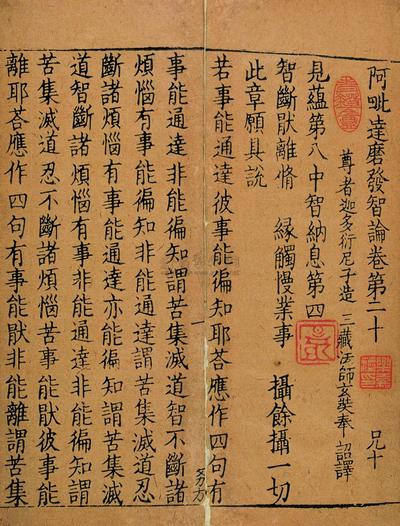 阿毗達磨發智論卷第二十
兄十
尊者迦多衍尼子造 三藏法師玄奘奉 詔譯
見蘊第八中智納息第四
智斷猒離脩 緣觸慢業事 攝餘攝一切
此章願具說
若事能通達彼事能徧知耶荅應作四句有
事能通達非能徧知謂苦集滅道智不斷諸
煩惱有事能徧知非能通達謂苦集滅道忍
斷諸煩惱有事能通達亦能徧知謂苦集滅
道智斷諸煩惱有事非能通達非能徧知謂
苦集滅道忍不斷諸煩惱若事能猒彼事能
離耶荅應作四句有事能猒非能離謂苦集